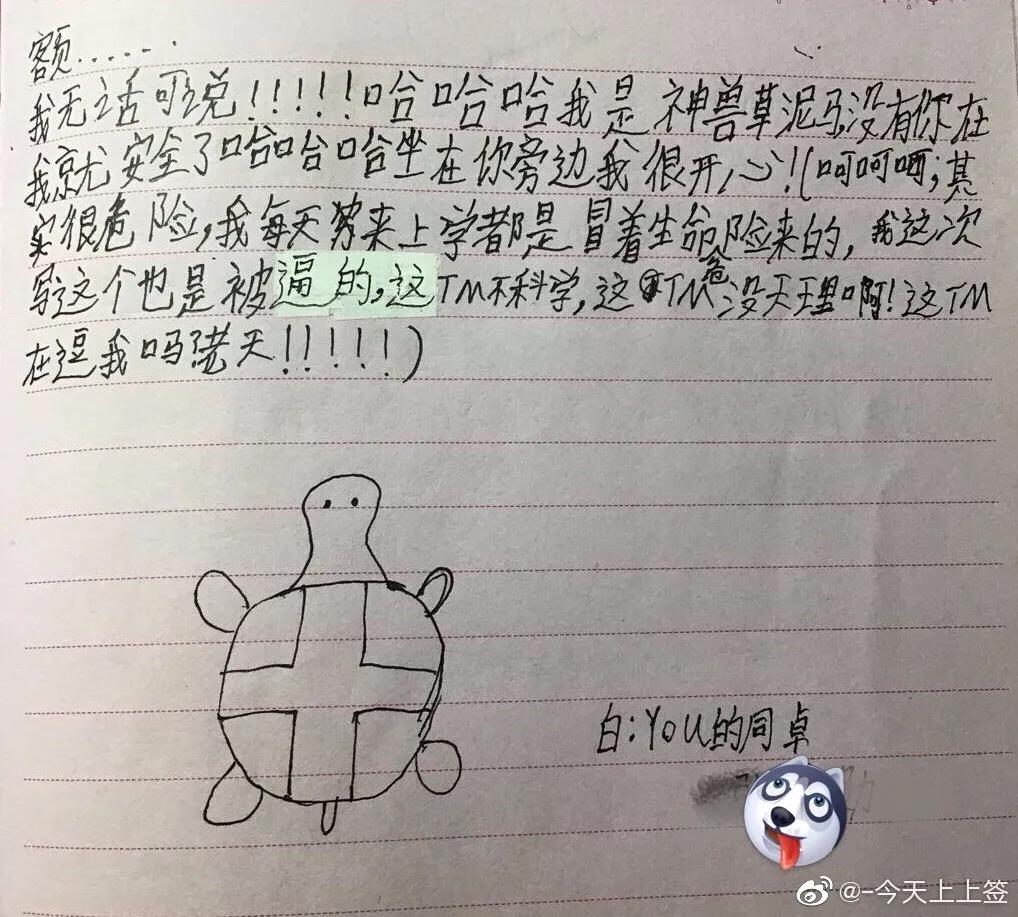 额......
我无话可说!!!!!哈哈哈我是神兽草泥马,没有你在
我就安全了哈哈哈坐在你旁边我很开心!(呵呵哂;其
实很危险,我每天来上学都是冒着生命危险来的,我这次
写这个也是被逼的,这TM不科学,这TM没天理啊!这TM
在逗我吗老天!!!!!)
白:YOU的同卓
@-今天上上签